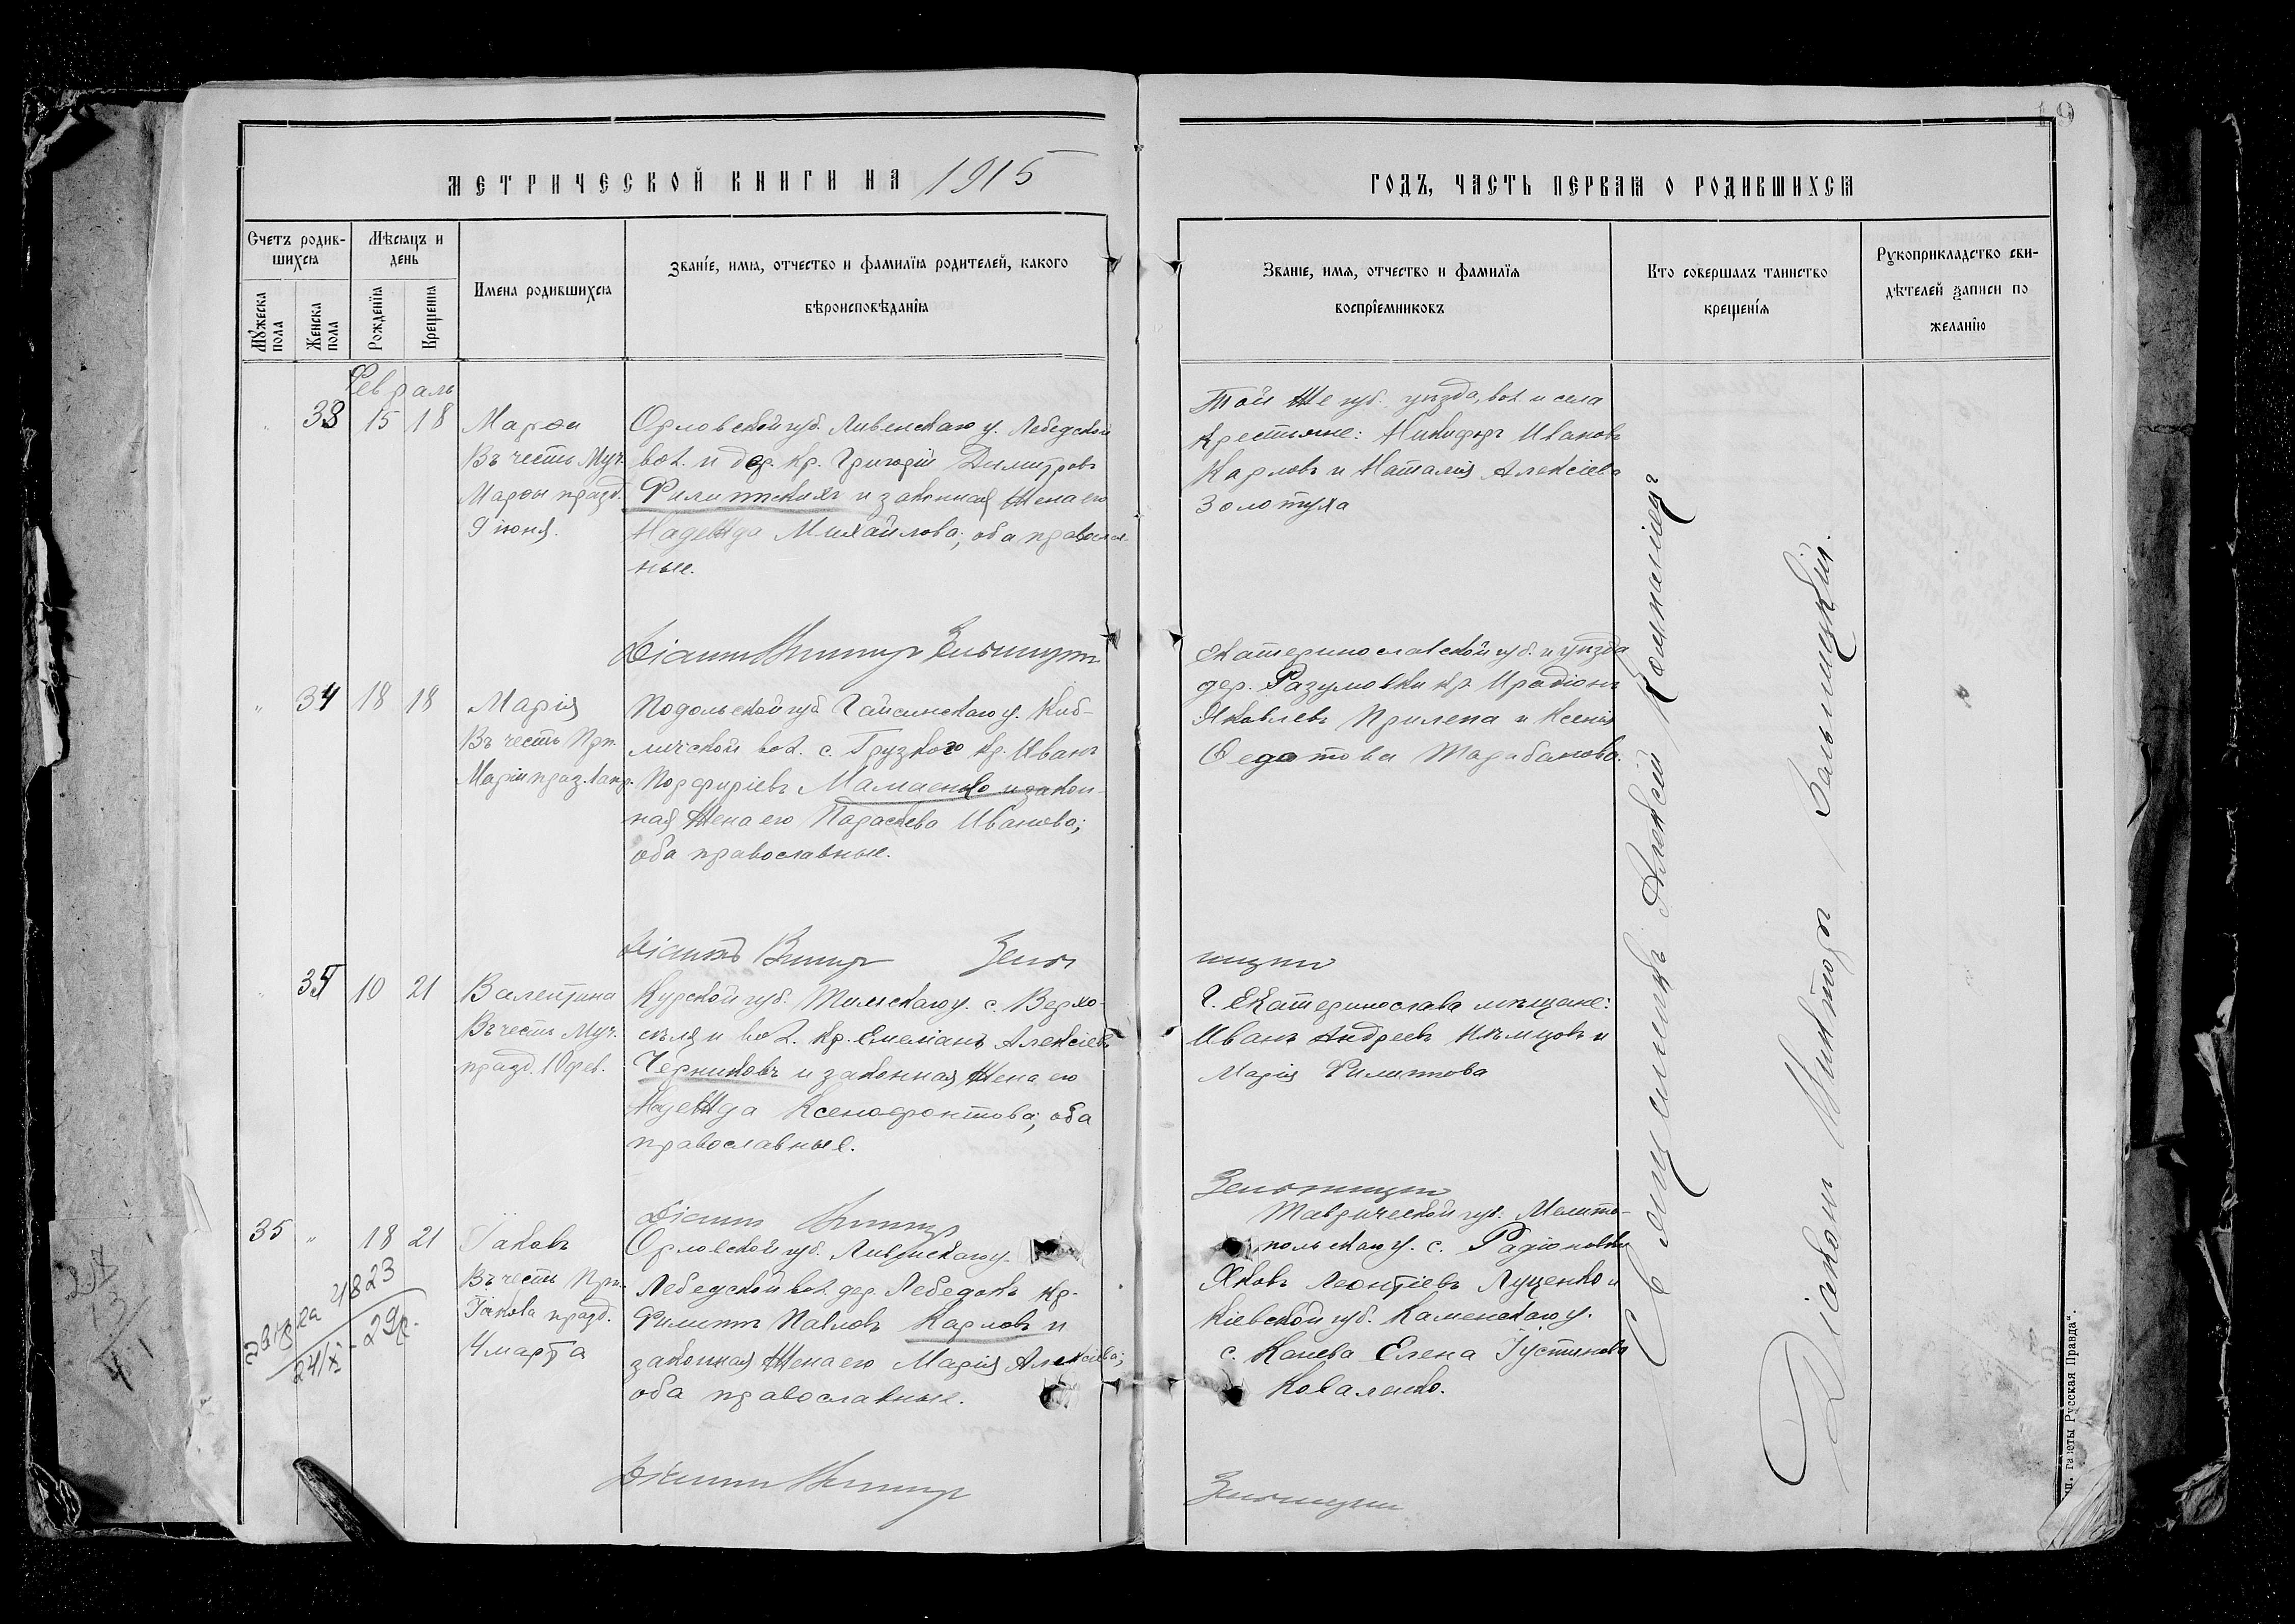 МЕТРИЧЕСКОЙ КНИГИ НА 1915
ГОДЪ, ЧАСТЬ ПЕРВАЯ О РОДИВШИХСЯ
Счетъ родив-
шихся
Мужеска пола
Женска пола
Мѣсяцъ и
день
Рожденїя
Крещенїя
Имена родившихся
Званїе, имя, отчество и фамилїя родителей, какого
вѣроисповѣданїя
Званїе, имя, отчество и фамилїя
воспрїемниковъ
Кто совершалъ таинство
крещенїя
Рукоприкладство сви-
дѣтелей записи по
желанїю
Февраль
" 33 15 18
Марѳа
Въ честь Муч.
Марѳы празд.
9 іюня.
Орловской губ. Ливенскаго у. Лебедской
вол. и дер. кр. Григорій Димитровъ
Филипскихъ и законная жена его
Надежда Михайлова; оба православ-
ные.
Той же губ. уѣзда, вол. и села
крестьяне: Никифоръ Ивановъ
Карловъ и Наталія Алексіева
Золотуха
" 34 18 18
Марія
Въ честь Прп.
Маріи праз. 1 апр.
Подольской губ. Гайсинскаго у. Киб-
личской вол. с. Грузкого кр. Иванъ
Порфиріевъ Мамаенко и закон-
ная жена его Параскева Иванова;
оба православные.
Екатеринославской губ. и уѣзда
дер. Разумовки кр. Иродіонъ
Яковлевъ Прилепа и Ксенія
Ѳедотова Тарабанова.
" 35 10 21
Валентина
Въ честь Муч.
празд. 10 фев.
Курской губ. Тимскаго у. с. Верхо-
сѣмя и вол. кр. Емеліанъ Алексіевъ
Черниковъ и законная жена его
Надежда Ксенофонтова; оба
православные.
Г. Екатеринослава мѣщане:
Иванъ Андреевъ Нѣмцовъ и
Марія Филиппова
35 " 18 21
Іаковъ
Въ честь Прп.
Іакова празд.
4 марта
Орловской губ. Ливенскаго у.
Лебедской вол. дер. Лебедокъ кр.
Филиппъ Павловъ Карловъ и
законная жена его Марія Алексіева;
оба православные.
Таврической губ. Мелито-
польскаго у. с. Радіоновки
Яковъ Леонтіевъ Луценко и
Кіевской губ. Каменскаго у.
с. Канева Елена Іустинова
Коваленко.
4823
24/XI - 29г.
Священникъ Алексій
Діаконъ Викторъ
Газеты Русская Правда".